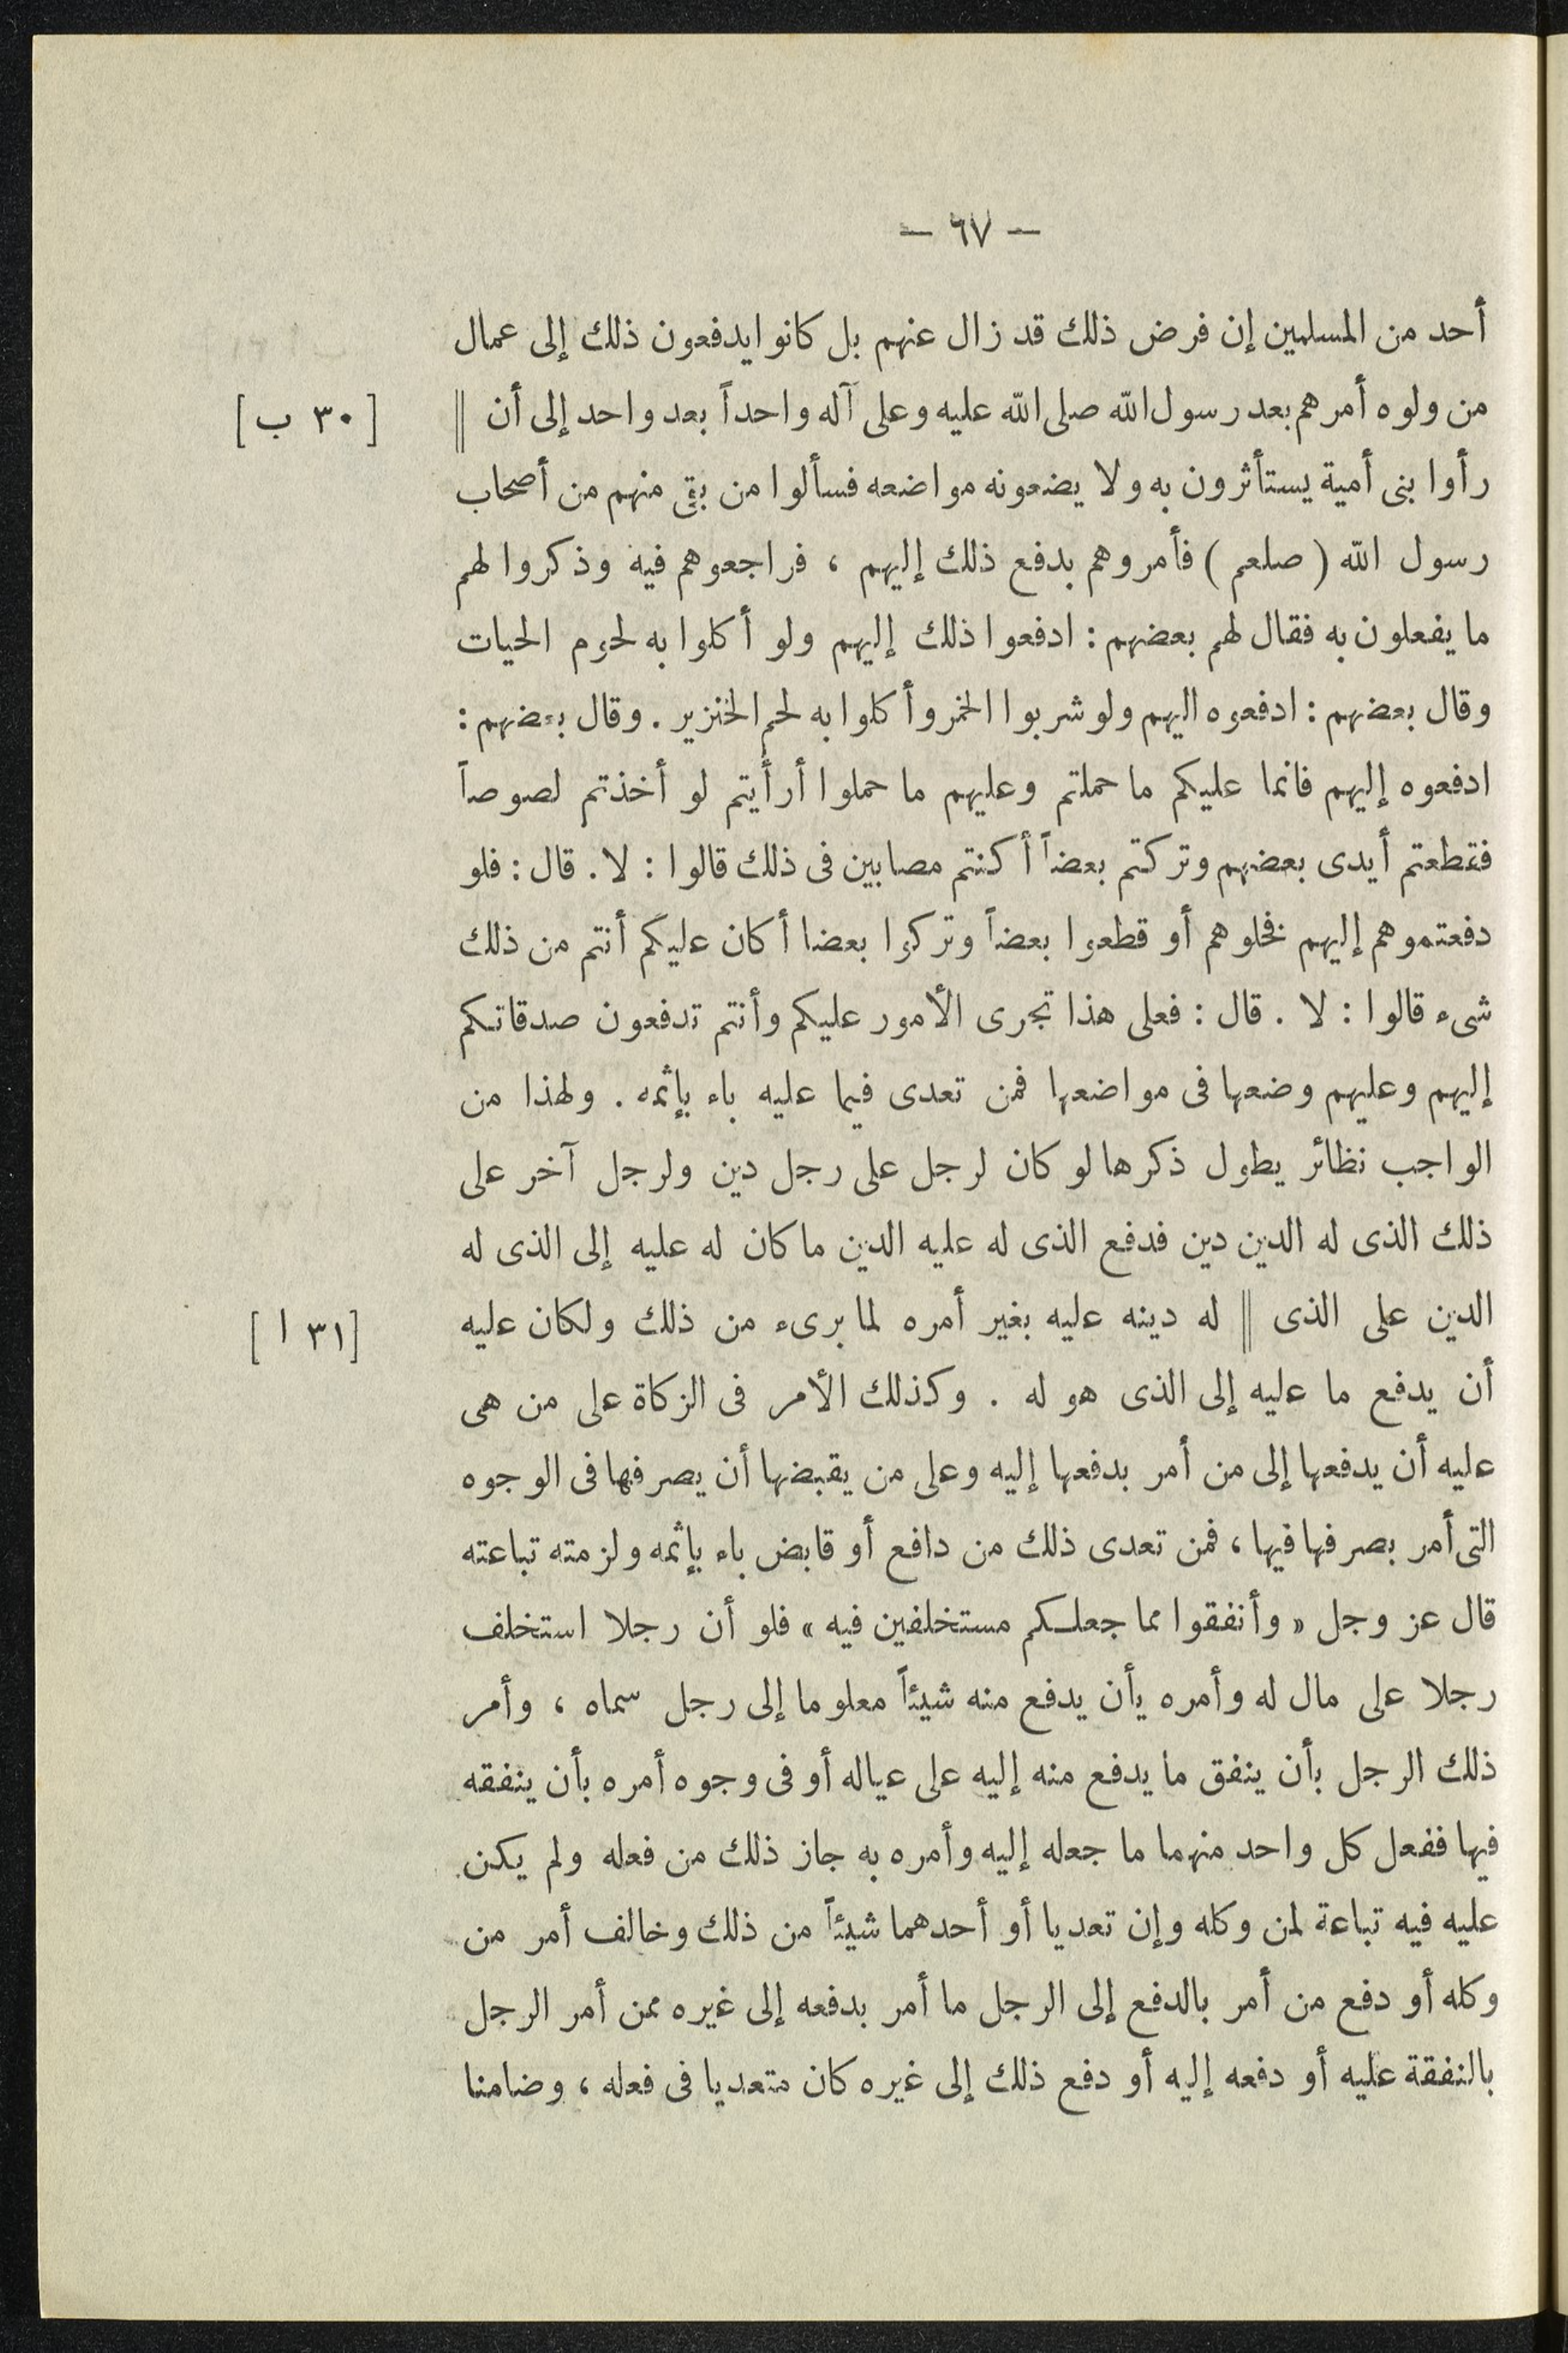 — ٦٧ —
أحد من المسلمين إن فرض ذلك قد زال عنهم بل كانوا يدفعون ذلك إلى عمال
من ولوه أمرهم بعد رسول الله صلى الله عليه وعلى آله واحداً بعد واحد إلى أن || [ ٣٠ ب ]
رأوا بنى أمية يستأثرون به ولا يضعونه مواضعه فسألوا من بقى منهم من أصحاب
رسول الله ( صلعم ) فأمروهم بدفع ذلك إليهم ، فراجعوهم فيه وذكروا لهم
ما يفعلون به فقال لهم بعضهم : ادفعوا ذلك إليهم ولو أكلوا به لحوم الحيات
وقال بعضهم : ادفعوه اليهم ولو شربوا الخمر وأكلوا به لحم الخنزير . وقال بعضهم :
ادفعوه إليهم فانما عليكم ما حملتم وعليهم ما حملوا أرأيتم لو أخذتم لصوصاً
فقطعتم أيدى بعضهم وتركتم بعضاً أكنتم مصابين فى ذلك قالوا : لا . قال : فلو
دفعتموهم إليهم فخلوهم أو قطعوا بعضاً وتركوا بعضا أكان عليكم أنتم من ذلك
شىء قالوا : لا . قال : فعلى هذا تجرى الأمور عليكم وأنتم تدفعون صدقاتكم
إليهم وعليهم وضعها فى مواضعها فمن تعدى فيما عليه باء بإثمه . ولهذا من
الواجب نظائر يطول ذكرها لو كان لرجل على رجل دين ولرجل آخر على
ذلك الذى له الدين دين فدفع الذى له عليه الدين ما كان له عليه إلى الذى له
الدين على الذى || له دينه عليه بغير أمره لما برىء من ذلك ولكان عليه [ ٣١ ا ]
أن يدفع ما عليه إلى الذى هو له . وكذلك الأمر فى الزكاة على من هى
عليه أن يدفعها إلى من أمر بدفعها إليه وعلى من يقبضها أن يصرفها فى الوجوه
التى أمر بصرفها فيها ، فمن تعدى ذلك من دافع أو قابض باء بإثمه ولزمته تباعته
قال عز وجل « وأنفقوا مما جعلكم مستخلفين فيه » فلو أن رجلا استخلف
رجلا على مال له وأمره يأن يدفع منه شيئاً معلوما إلى رجل سماه ، وأمر
ذلك الرجل بأن ينفق ما يدفع منه إليه على عياله أو فى وجوه أمره بأن ينفقه
فيها ففعل كل واحد منهما ما جعله إليه وأمره به جاز ذلك من فعله ولم يكن
عليه فيه تباعة لمن وكله وإن تعديا أو أحدهما شيئاً من ذلك وخالف أمر من
وكله أو دفع من أمر بالدفع إلى الرجل ما أمر بدفعه إلى غيره ممن أمر الرجل
بالنفقة عليه أو دفعه إليه أو دفع ذلك إلى غيره كان متعديا فى فعله ، وضامنا